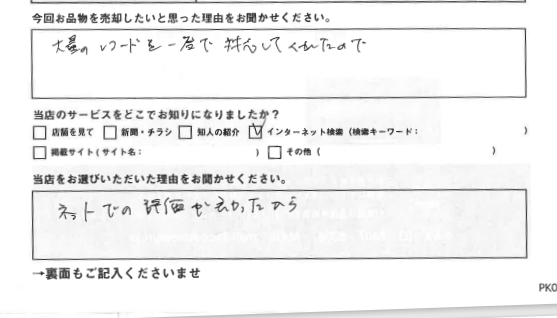 今回お品物を売却したいと思った理由をお聞かせください。
大量のレコードを一度で対応してくれたので
当店のサービスをどこでお知りになりましたか?
□ 店舗を見て □ 新聞・チラシ □ 知人の紹介 ☑ インターネット検索(検索キーワード: )
□ 掲載サイト(サイト名: ) □ その他( )
当店をお選びいただいた理由をお聞かせください。
ネットでの評価が高かったから
→裏面もご記入くださいませ
PK0